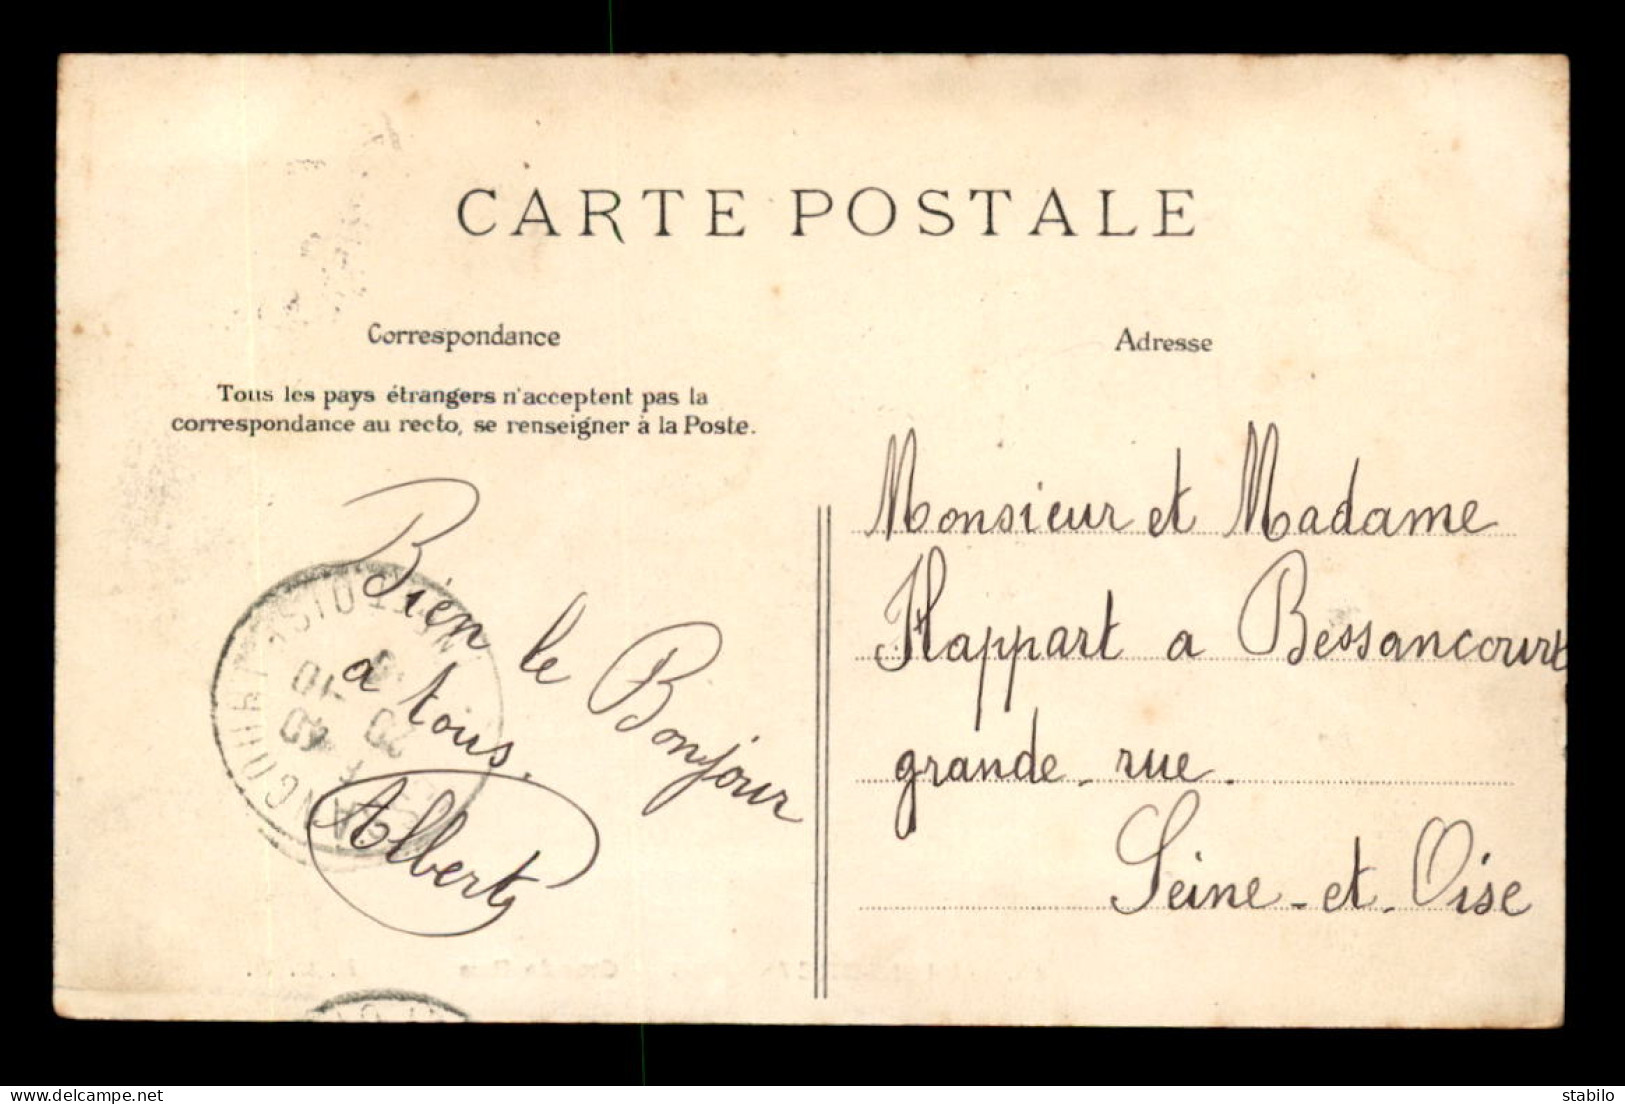 CARTE POSTALE
Correspondance
Tous les pays étrangers n'acceptent pas la
correspondance au recto, se renseigner à la Poste.
Bien le Bonjour
a tous.
Albert
Adresse
Monsieur et Madame
Happart a Bessancourt
grande rue.
Seine-et-Oise
20
10
www.delcampe.net
stabilo